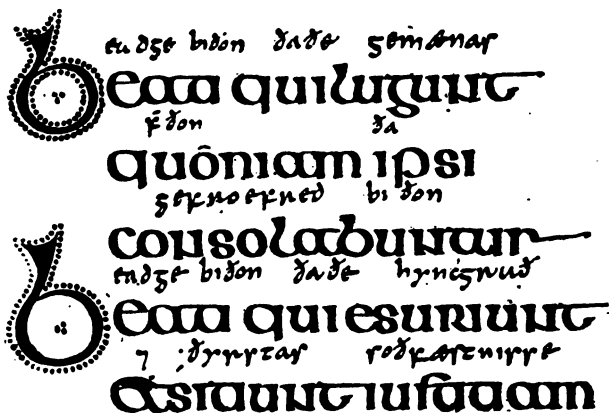 eadge biðon ða ðe gemænas
beati qui lugunt
f̄ ðon ða
quôniam ipsi
gefroefred bi ðon
consolabuntur
eadge biðon ða ðe hyncgrað
beati qui esuriunt
⁊ ðyrstas soðfæstnisse
&sitiunt iustitiam